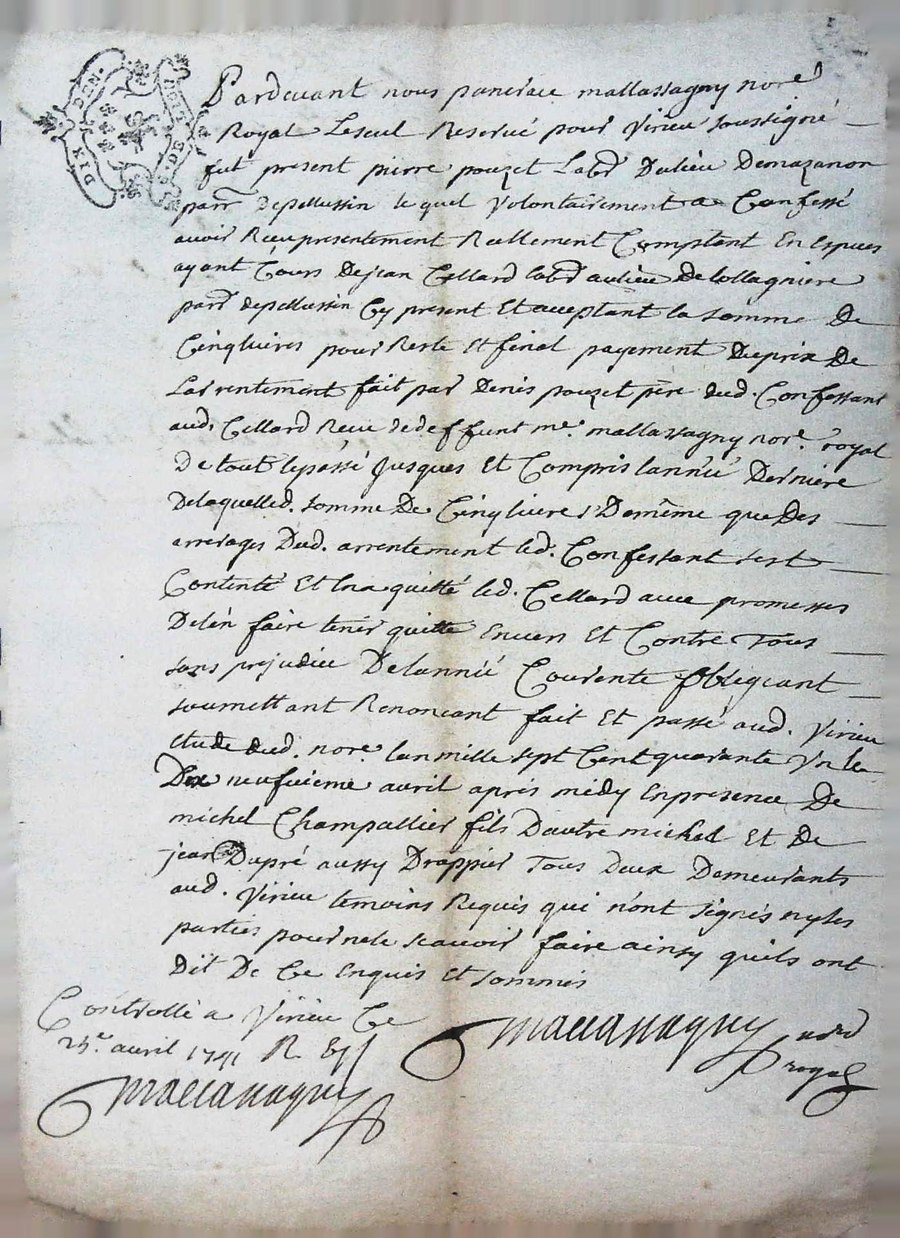 DIX DEN.
Pardevant nous pancrace mallassagny nore
Royal Leseul Reservé pour Virieu soussigné
fut present pierre pouzet Labr Dulieu Demazanon
parr depellussin lequel volontairement a Confessé
avoir Reeu presentement Reellement Comptant En Espues
ayant Cours Dejean Cellard labr aulieu Delollagniere
parr depellussin Cy present Et acceptant la somme De
Cinqlivres pour Reste Et final payement Duprix De
Larrentement fait par Denis pouzet père dud. Confessant
aud. Cellard Receu dedeffunt me. mallassagny nore. royal
De tout lepassé Jusques Et Compris lannéé Derniere
Delaquelled. somme De Cinqlivres Demême que Des
arrerages Dud. arrentement led. Confessant sest
Contenté Et En a quitté led. Cellard avec promesses
Delen faire tenir quitte Envers Et Contre Tous
sans prejudice Delanneé Courente Obligeant
soumettant Renoncant fait Et passé aud. Virieu
Etude dud. nore. Lan mille sept Cent quarante Vn le
Dix neufvieme avril après midy Enpresence De
michel Champallier fils Dautre michel Et de
jean Dupré aussy Drappier Tous Deux Demeurants
aud. Virieu temoins Requis qui n'ont signés ny les
parties pour ne le scavoir faire ainsy quils ont
Dit De Ce Enquis Et sommés
Mallassagny nore
royal
Controllé a Virieu Ce
avril 1741 R
Mallassagny